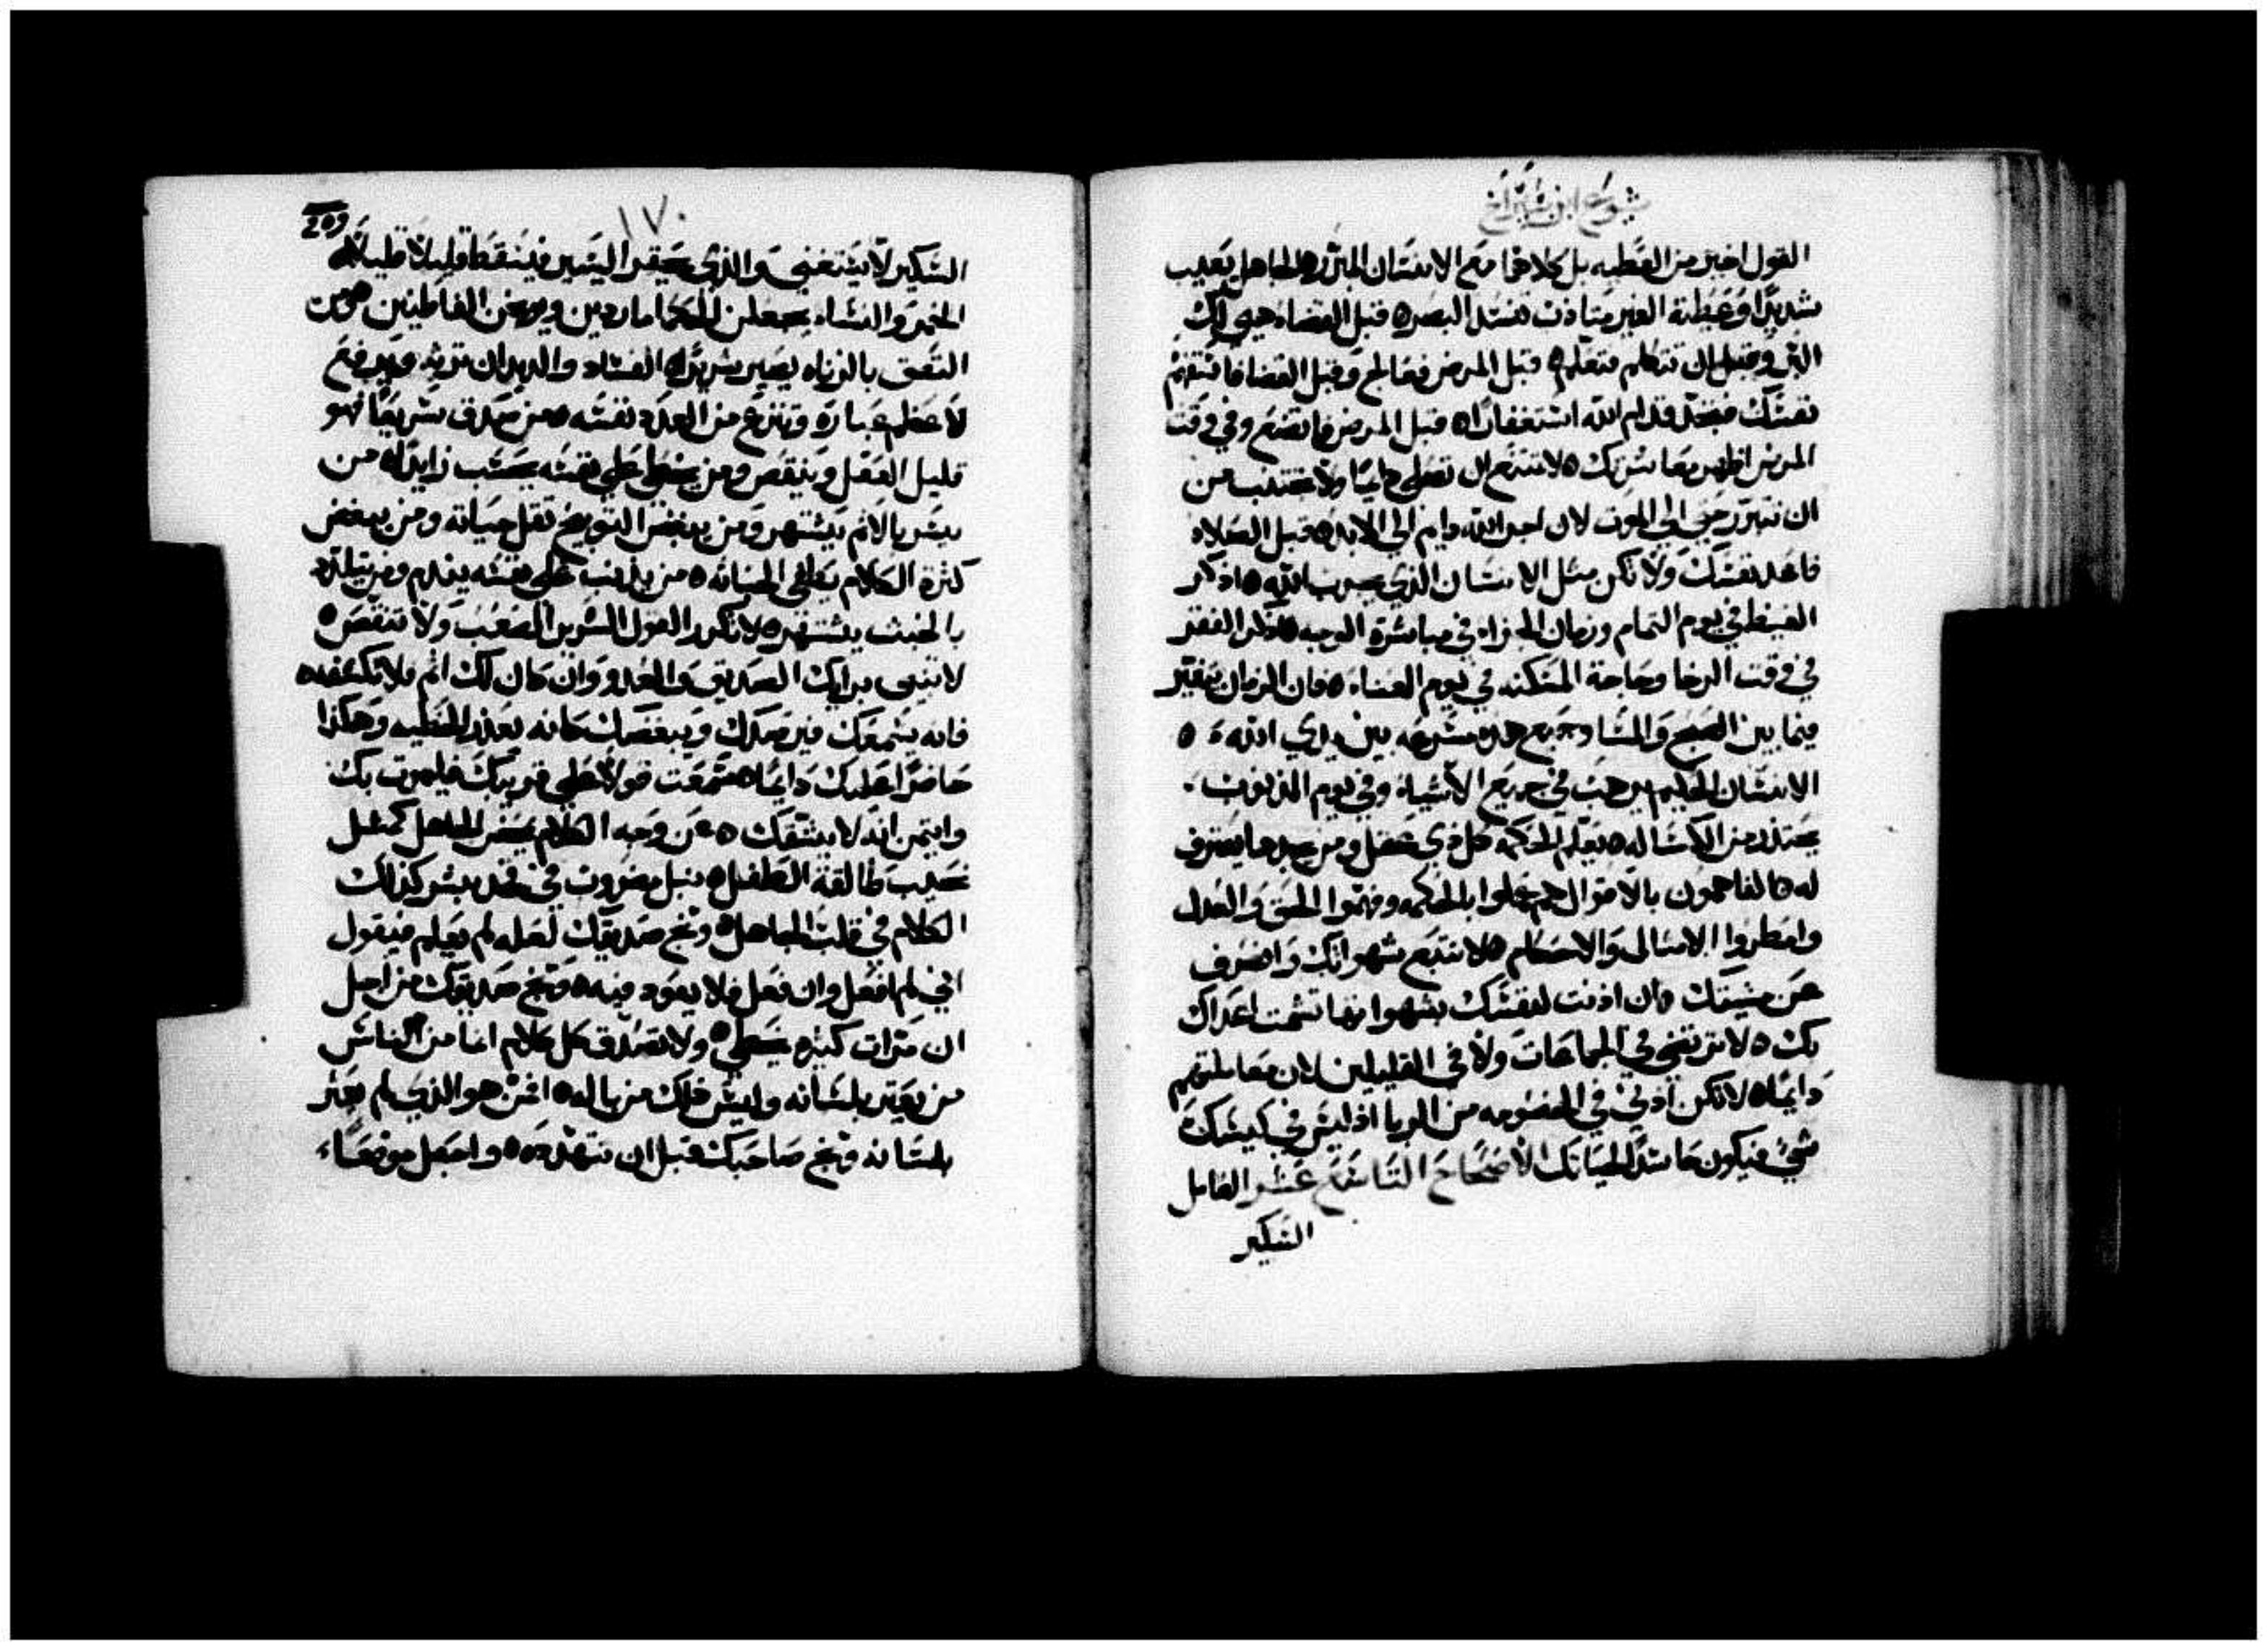 يشوع ابن شيراخ
القول اخير من العطيه بل كلاهما مع الانسان المبرر والجاهل يعيب
شديدًا وعطية الغير متادت تفسد البصره قبل القضاء هيي لك
البر وقبل ان تتكلم فتعلم ه قبل المرض فعالج وقبل القضا فاستفهم
نفسك فتجد قدام الله استغفارًا ه قبل المرض فاتضع وفي وقت
المرض اظهر معاشرتك ه لا تتنع ان تصلي دايمًا ولا تجتنب من
ان تتبرر حتى الى الموت لان اجر الله دايم الى الابد ه قبل الصلاه
فاعد نفسك ولا تكن مثل الانسان الذي يجرب الله ه اذكر
الغيظ في يوم التمام وزمان الجزاء في مباشرة الوجه ه اذكر الفقر
في وقت الرخا وحاجة المسكنه في يوم الغناء ه فان الزمان يتغير
فيما بين الصبح والمسا وجميع هذه مسرعه بين يدي الله ه
الانسان الحكيم يرهب في جميع الاشياء وفي يوم الذنوب
يحتذر من الكسالة ه يعلم الحكمه كل ذي عقل ومن يجدها يعترف
له ه الفاهمون بالاقوال هم عملوا بالحكمه وفهموا الحق والعدل
وامطروا الامثال والاحكام ه لا تتبع شهواتك وانصرف
عن مشيتك فان اذنت لنفسك بشهواتها تشمت اعداك
بك ه لا ترتضي في الجماعات ولا في القليلين لان معاملتهم
دايمًا ه لا تكن ادني في الخصومه من الربا اذ ليس في كيسك
شي فيكون حاسدًا لحياتك الاصحاح التاسع عشر الفاعل
السكير
١٧٠
209
السكير لا يستغني والذي يحقر اليسير فيسقط قليلاً قليلاً ه
الخمر والنساء يجعلن الحكما ماردين ويوبخن الفاطنين ه ومن
التصق بالزناه يصير شريرًا ه الفساد والديدان ترثه ويرفع
لاعظم عبارة وتنزع من العدد نفسه ه من صدق سريعًا فهو
قليل العقل وينقص ومن يخطي على نفسه يحسب زايدًا ه من
يسر بالاثم يشتهر ومن يبغض التوبيخ تقل حياته ومن يبغض
كثرة الكلام يطفي الخباثه ه من يذنب على نفسه يندم ومن يتلذذ
بالخبث يشتهر ه لا تكرر القول الشرير الصعب ولا تنقص ه
لا تبني برايك الصديق والعدو وان كان لك اثم فلا تكشفه ه
فانه يسمعك فيرصدك ويبغضك كانه يعذر الخطيه وهكذا
حاضرًا عليك دايمًا ه سمعت قولاً على قريبك فليمت بك
وايتمن انه لا يشقك ه من وجه الكلام يتمخض الجاهل كمثل
نحيب طالقة الطفل ه نبل مغروت في فخد بشر كذلك
الكلام في قلب الجاهل ه وبخ صديقك لعله لم يعلم فيقول
اني لم افعل وان فعل فلا يعود فيه ه وبخ صديقك من اجل
ان مرات كثيره يخطي ه ولا تصدق كل كلام انما من الناس
من يعثر بلسانه وليس ذلك من باله ه اخن هو الذي لم يعثر
بلسانه وبخ صاحبك قبل ان تتهدده ه واجعل موضعًا